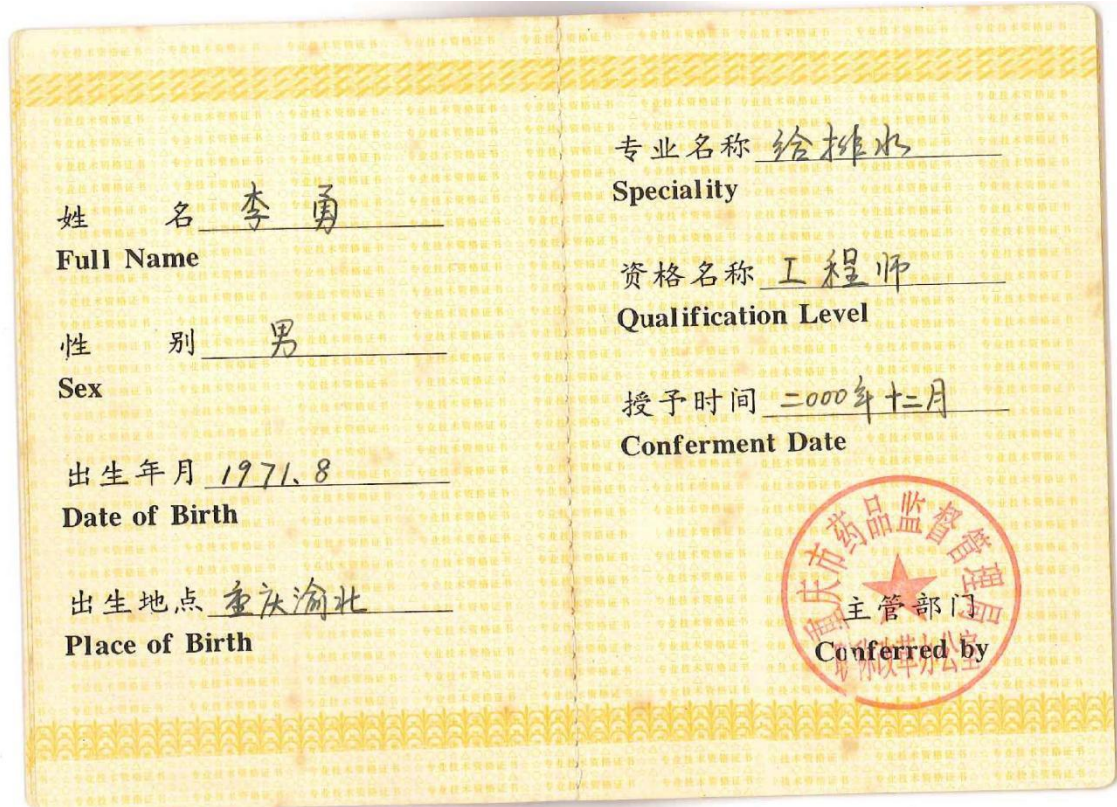 姓 名 李 勇
Full Name
性 别 男
Sex
出生年月 1971、8
Date of Birth
出生地点 重庆渝北
Place of Birth
专业名称 给排水
Speciality
资格名称 工程师
Qualification Level
授予时间 二000年十二月
Conferment Date
重庆市药品监督管理局
主管部门
Conferred by
职称改革办公室